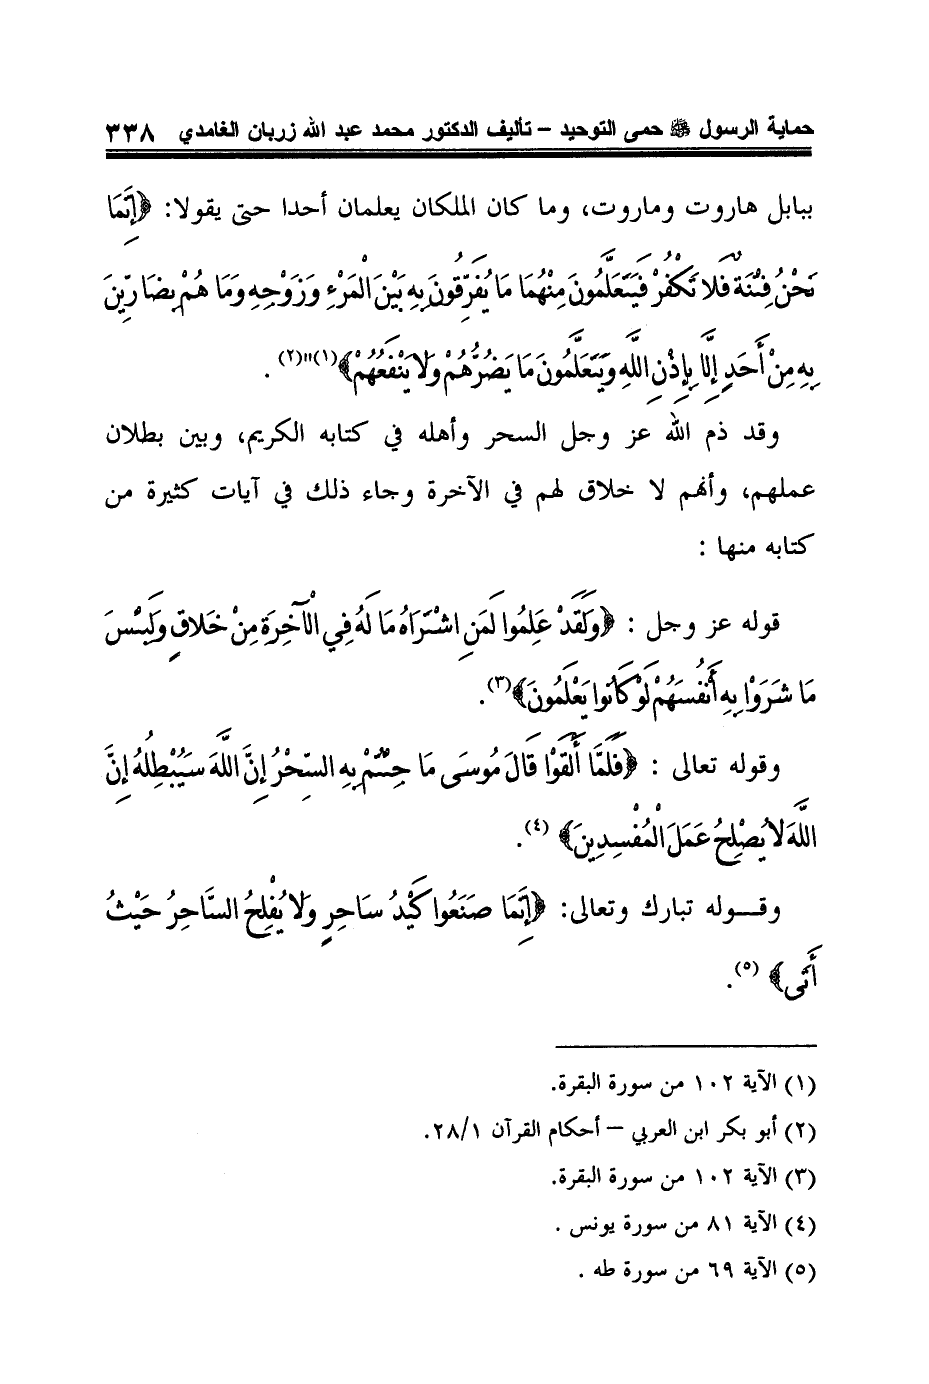 حماية الرسول ﷺ حمى التوحيد – تأليف الدكتور محمد عبد الله زربان الغامدي ٣٣٨
ببابل هاروت وماروت، وما كان الملكان يعلمان أحدا حتى يقولا: ﴿إِنَّمَا
نَحْنُ فِتْنَةٌ فَلَا تَكْفُرْ فَيَتَعَلَّمُونَ مِنْهُمَا مَا يُفَرِّقُونَ بِهِ بَيْنَ الْمَرْءِ وَزَوْجِهِ وَمَا هُمْ بِضَارِّينَ
بِهِ مِنْ أَحَدٍ إِلَّا بِإِذْنِ اللَّهِ وَيَتَعَلَّمُونَ مَا يَضُرُّهُمْ وَلَا يَنْفَعُهُمْ﴾(١)"(٢) .
وقد ذم الله عز وجل السحر وأهله في كتابه الكريم، وبين بطلان
عملهم، وأنهم لا خلاق لهم في الآخرة وجاء ذلك في آيات كثيرة من
كتابه منها :
قوله عز وجل : ﴿وَلَقَدْ عَلِمُوا لَمَنِ اشْتَرَاهُ مَا لَهُ فِي الْآخِرَةِ مِنْ خَلَاقٍ وَلَبِئْسَ
مَا شَرَوْا بِهِ أَنْفُسَهُمْ لَوْ كَانُوا يَعْلَمُونَ﴾(٣).
وقوله تعالى : ﴿فَلَمَّا أَلْقَوْا قَالَ مُوسَى مَا جِئْتُمْ بِهِ السِّحْرُ إِنَّ اللَّهَ سَيُبْطِلُهُ إِنَّ
اللَّهَ لَا يُصْلِحُ عَمَلَ الْمُفْسِدِينَ﴾ (٤).
وقـــوله تبارك وتعالى: ﴿إِنَّمَا صَنَعُوا كَيْدُ سَاحِرٍ وَلَا يُفْلِحُ السَّاحِرُ حَيْثُ
أَتَى﴾ (٥).
(١) الآية ١٠٢ من سورة البقرة.
(٢) أبو بكر ابن العربي – أحكام القرآن ٢٨/١.
(٣) الآية ١٠٢ من سورة البقرة.
(٤) الآية ٨١ من سورة يونس .
(٥) الآية ٦٩ من سورة طه .